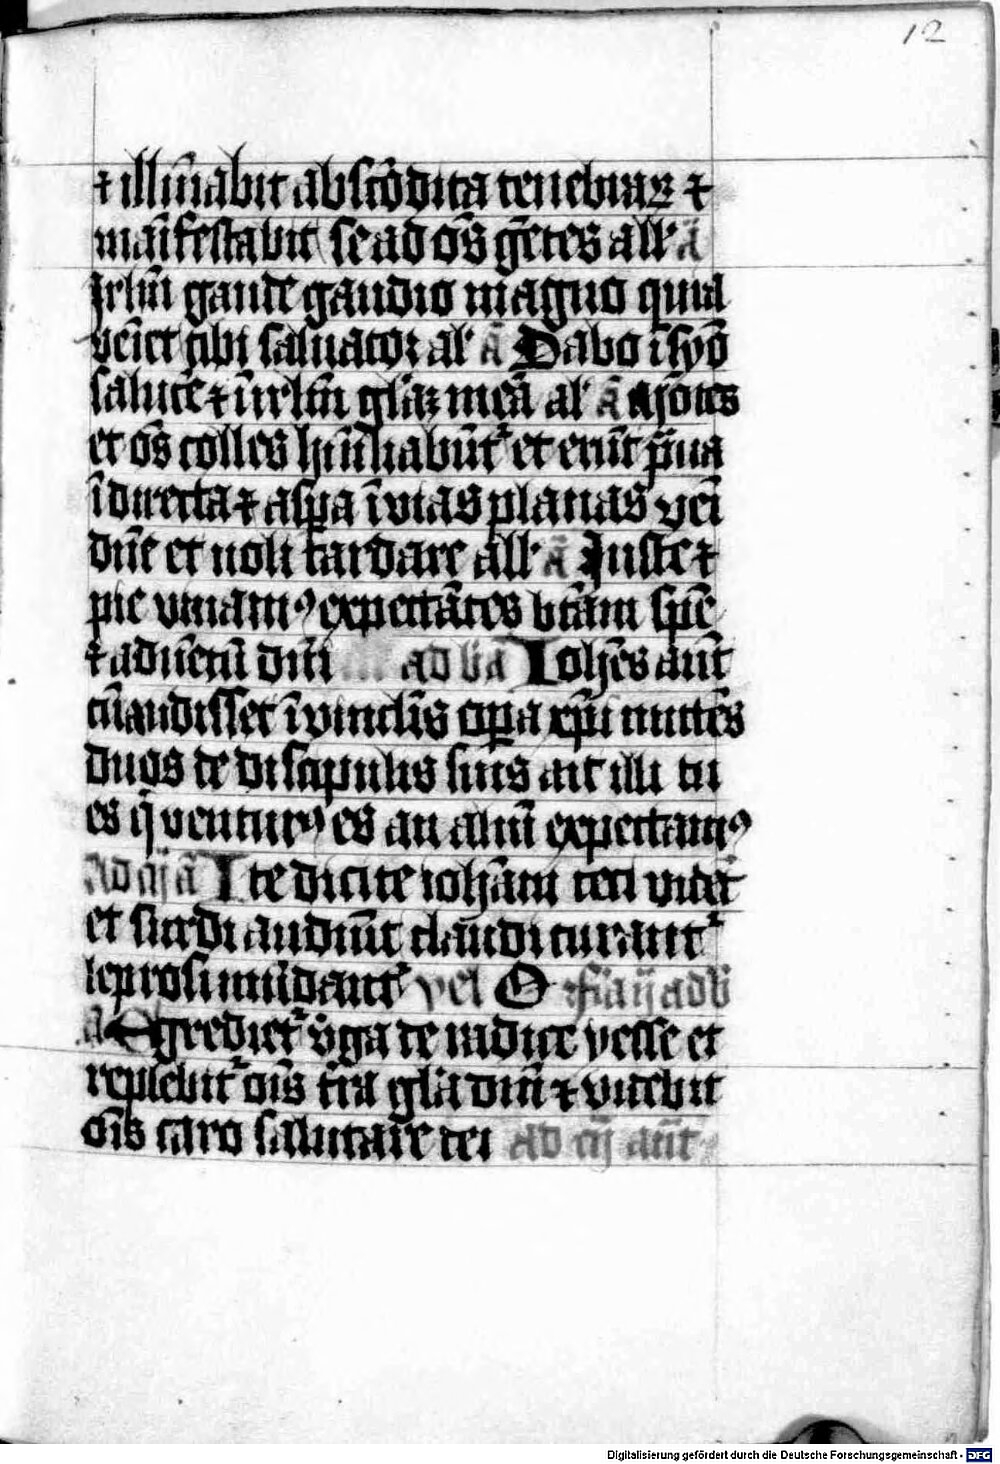 12
⁊ illūīabit abscōdita tenebraꝝ ⁊
maīfestabit se ad oēs gētes all'a ā
Jrlm̄ gaude gaudio magno quia
veīet tibi saluator al' ā Dabo ī syō
salutē ⁊ ī irlm̄ glīaꝫ meā al' ā Mōtes
et oēs colles hūiliabūtr et erūt praua
ī directa ⁊ aspa ī vias planas veī
dn̄e et noli tardare all'a ā Juste ⁊
pie viuamꝰ expectātes btām spē
⁊ aduētū dn̄i ad bn̄ā Johēs aūt
cū audisset ī vinclīs opa xp̄i mittēs
duos de discipulis suis ait illi tu
es q̄ venturꝰ es an aliū expectamꝰ
Ad mā Ite dicite iohāni ceci vidēt
et surdi audiūt claudi curantr
leprosi mūdantr vel O
ā Egredietr vga de radice yesse et
replebitr oīs tra glīa dn̄i ⁊ videbit
oīs caro salutare dei ad iij aūt
Digitalisierung gefördert durch die Deutsche Forschungsgemeinschaft - DFG